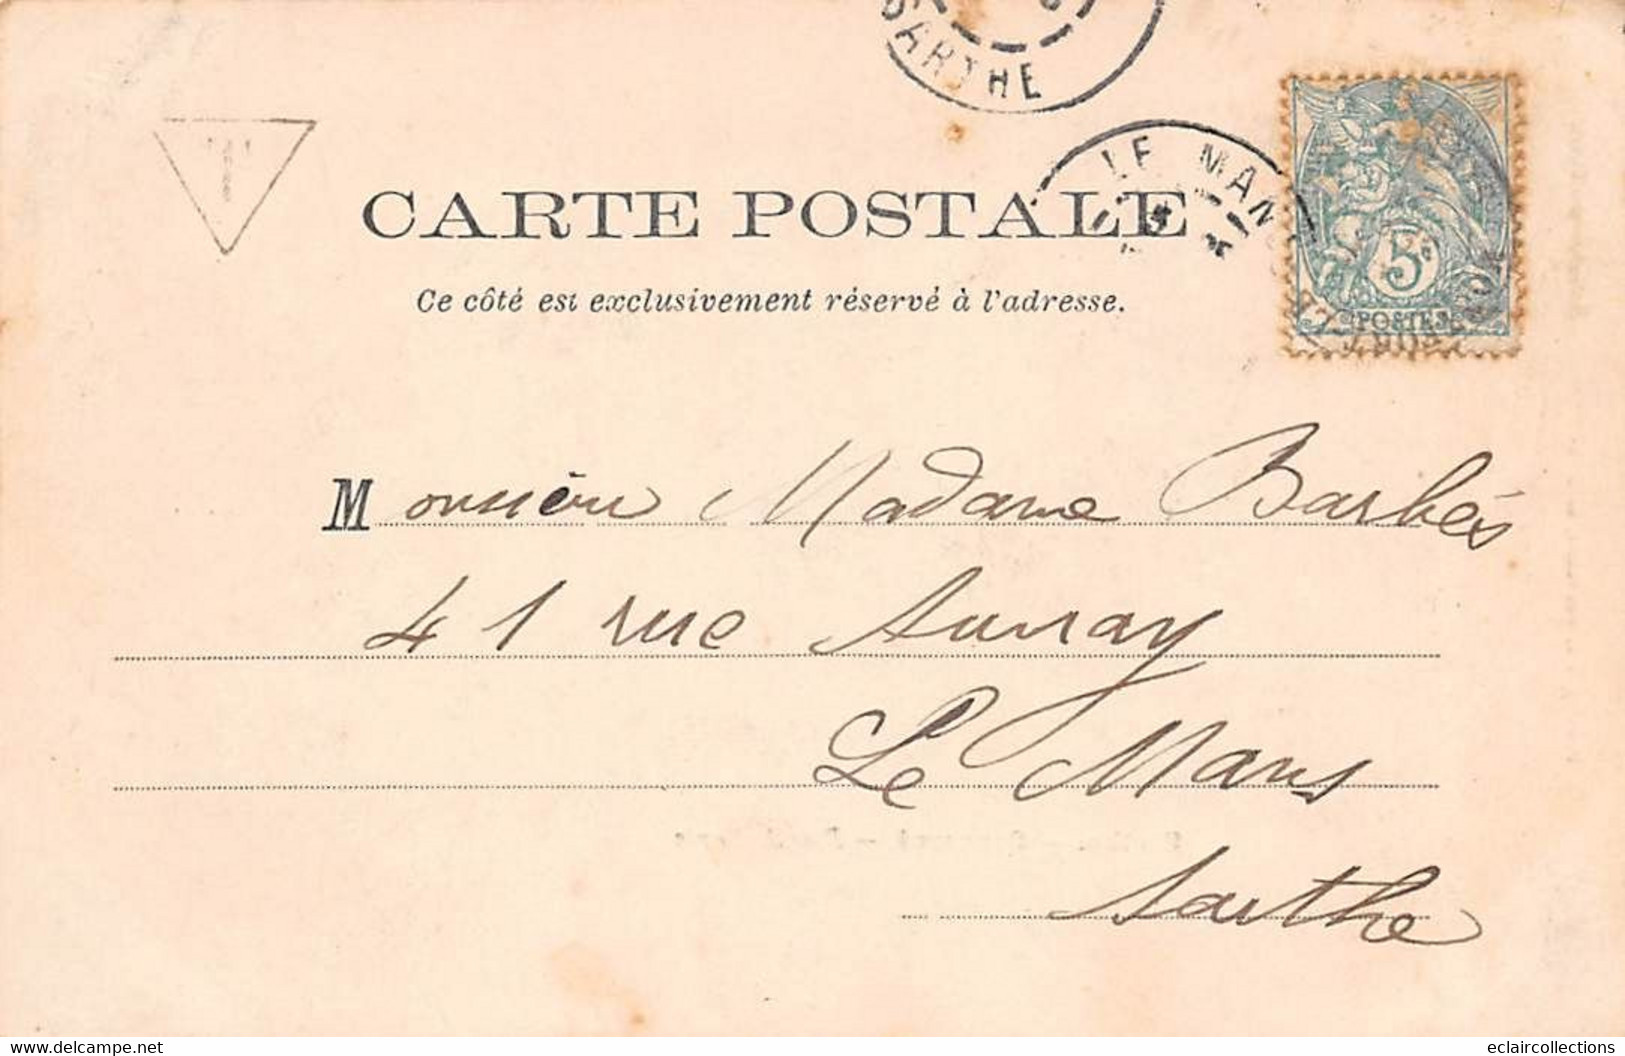 SARTHE
LE MANS
T
CARTE POSTALE
Ce côté est exclusivement réservé à l'adresse.
5c
POSTES
Monsieur Madame Barbés
41 rue Auvray
Le Mans
Sarthe
www.delcampe.net
eclaircollections